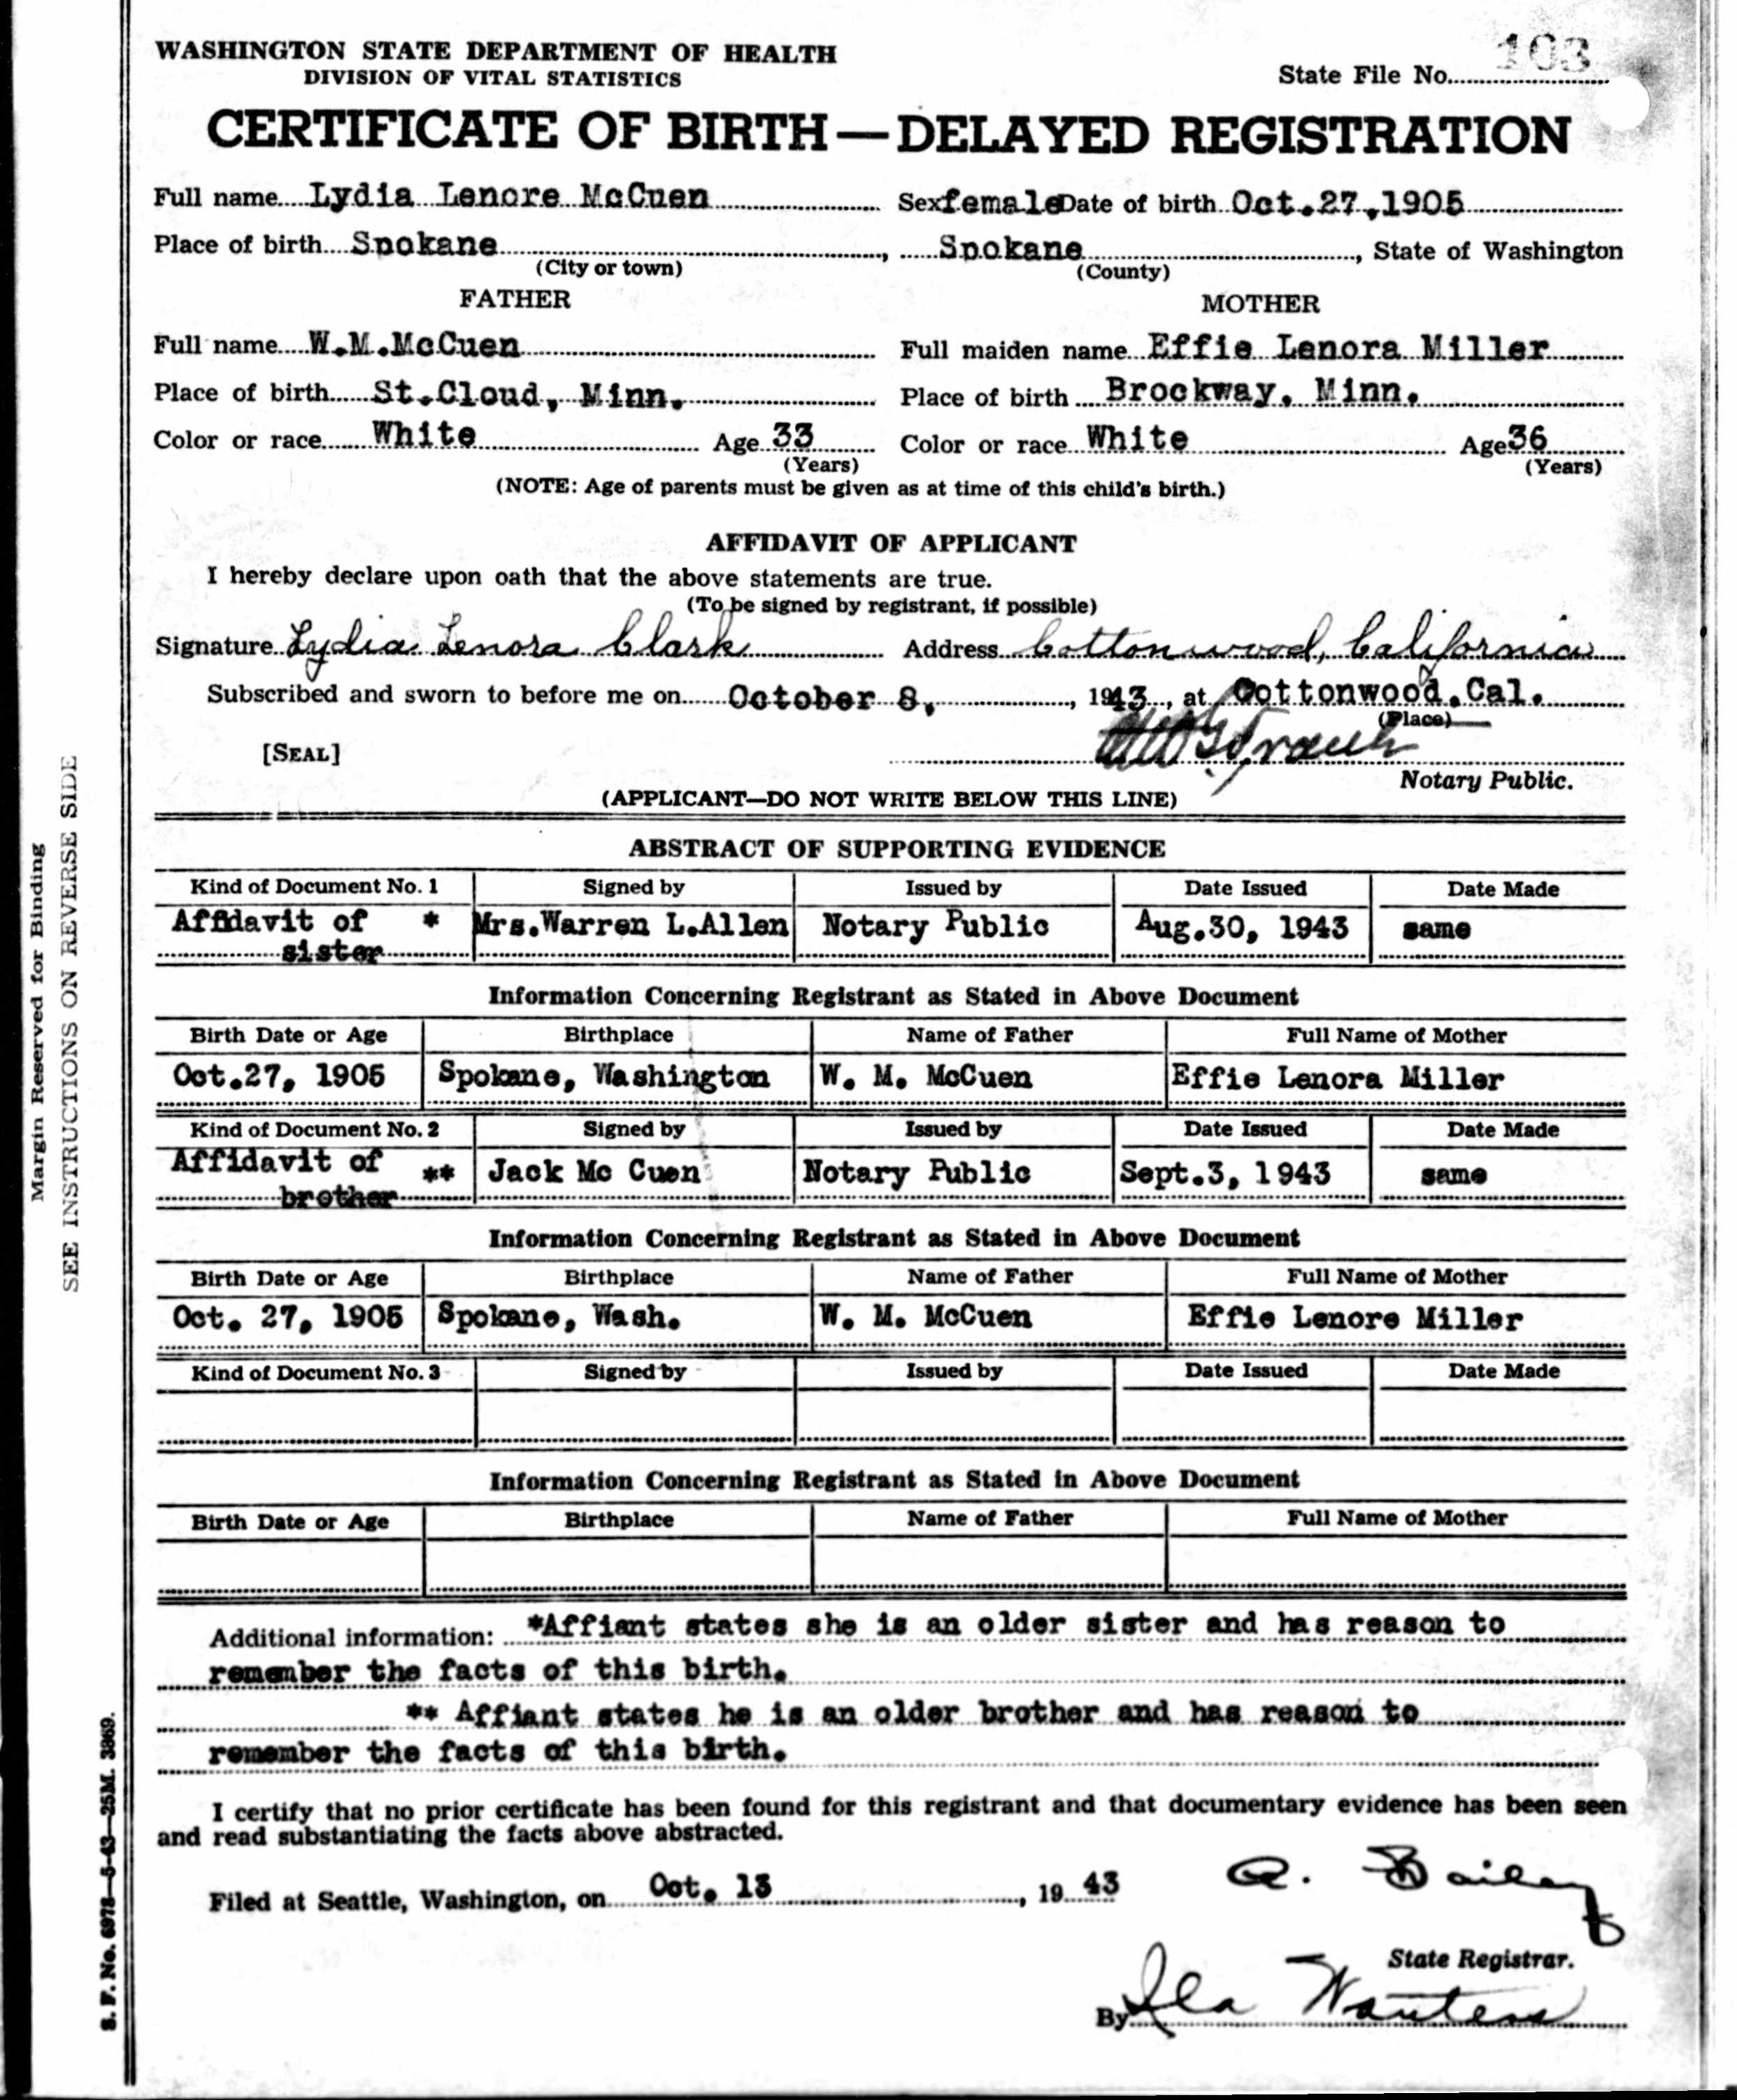 WASHINGTON STATE DEPARTMENT OF HEALTH
DIVISION OF VITAL STATISTICS
State File No. 103
CERTIFICATE OF BIRTH—DELAYED REGISTRATION
Full name Lydia Lenore McCuen Sex female Date of birth Oct.27,1905
Place of birth Spokane, Spokane, State of Washington
(City or town) (County)
FATHER MOTHER
Full name W.M.McCuen Full maiden name Effie Lenora Miller
Place of birth St.Cloud, Minn. Place of birth Brockway, Minn.
Color or race White Age 33 Color or race White Age 36
(Years) (Years)
(NOTE: Age of parents must be given as at time of this child's birth.)
AFFIDAVIT OF APPLICANT
I hereby declare upon oath that the above statements are true.
(To be signed by registrant, if possible)
Signature Lydia Lenora Clark Address Cottonwood, California
Subscribed and sworn to before me on October 8, 1943, at Cottonwood,Cal.
(Place)
[SEAL]
Notary Public.
(APPLICANT—DO NOT WRITE BELOW THIS LINE)
ABSTRACT OF SUPPORTING EVIDENCE
Kind of Document No. 1 Signed by Issued by Date Issued Date Made
Affidavit of * Mrs.Warren L.Allen Notary Public Aug.30, 1943 same
sister
Information Concerning Registrant as Stated in Above Document
Birth Date or Age Birthplace Name of Father Full Name of Mother
Oct.27, 1905 Spokane, Washington W. M. McCuen Effie Lenora Miller
Kind of Document No. 2 Signed by Issued by Date Issued Date Made
Affidavit of ** Jack Mc Cuen Notary Public Sept.3, 1943 same
brother
Information Concerning Registrant as Stated in Above Document
Birth Date or Age Birthplace Name of Father Full Name of Mother
Oct. 27, 1905 Spokane, Wash. W. M. McCuen Effie Lenore Miller
Kind of Document No. 3 Signed by Issued by Date Issued Date Made
Information Concerning Registrant as Stated in Above Document
Birth Date or Age Birthplace Name of Father Full Name of Mother
Additional information: *Affiant states she is an older sister and has reason to
remember the facts of this birth.
** Affiant states he is an older brother and has reason to
remember the facts of this birth.
I certify that no prior certificate has been found for this registrant and that documentary evidence has been seen
and read substantiating the facts above abstracted.
Filed at Seattle, Washington, on Oct. 13, 19 43 A. Bailey
State Registrar.
By Ila
Margin Reserved for Binding
SEE INSTRUCTIONS ON REVERSE SIDE
S. F. No. 6978—5-43—25M. 3869.